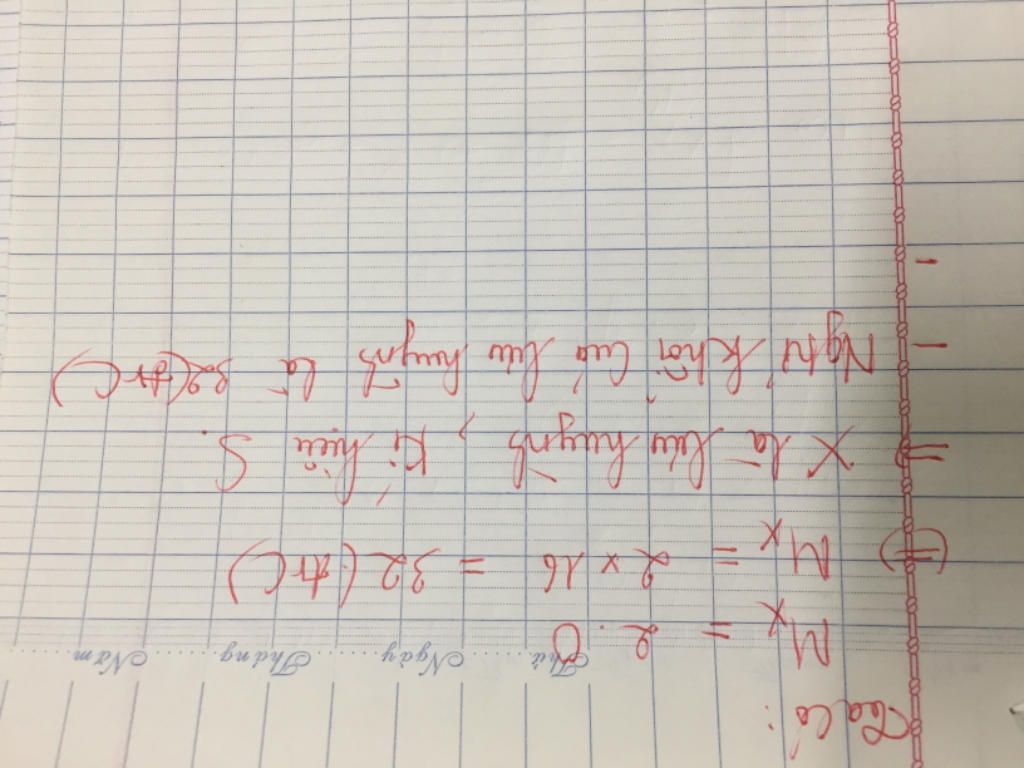 Ta có:
Thứ......Ngày......Tháng......Năm......
Mx = 2.O
(=) Mx = 2 x 16 = 32 (đvC)
= X là lưu huỳnh, kí hiệu S.
- Nghtử khối của lưu huỳnh là 32 (đvC)
-